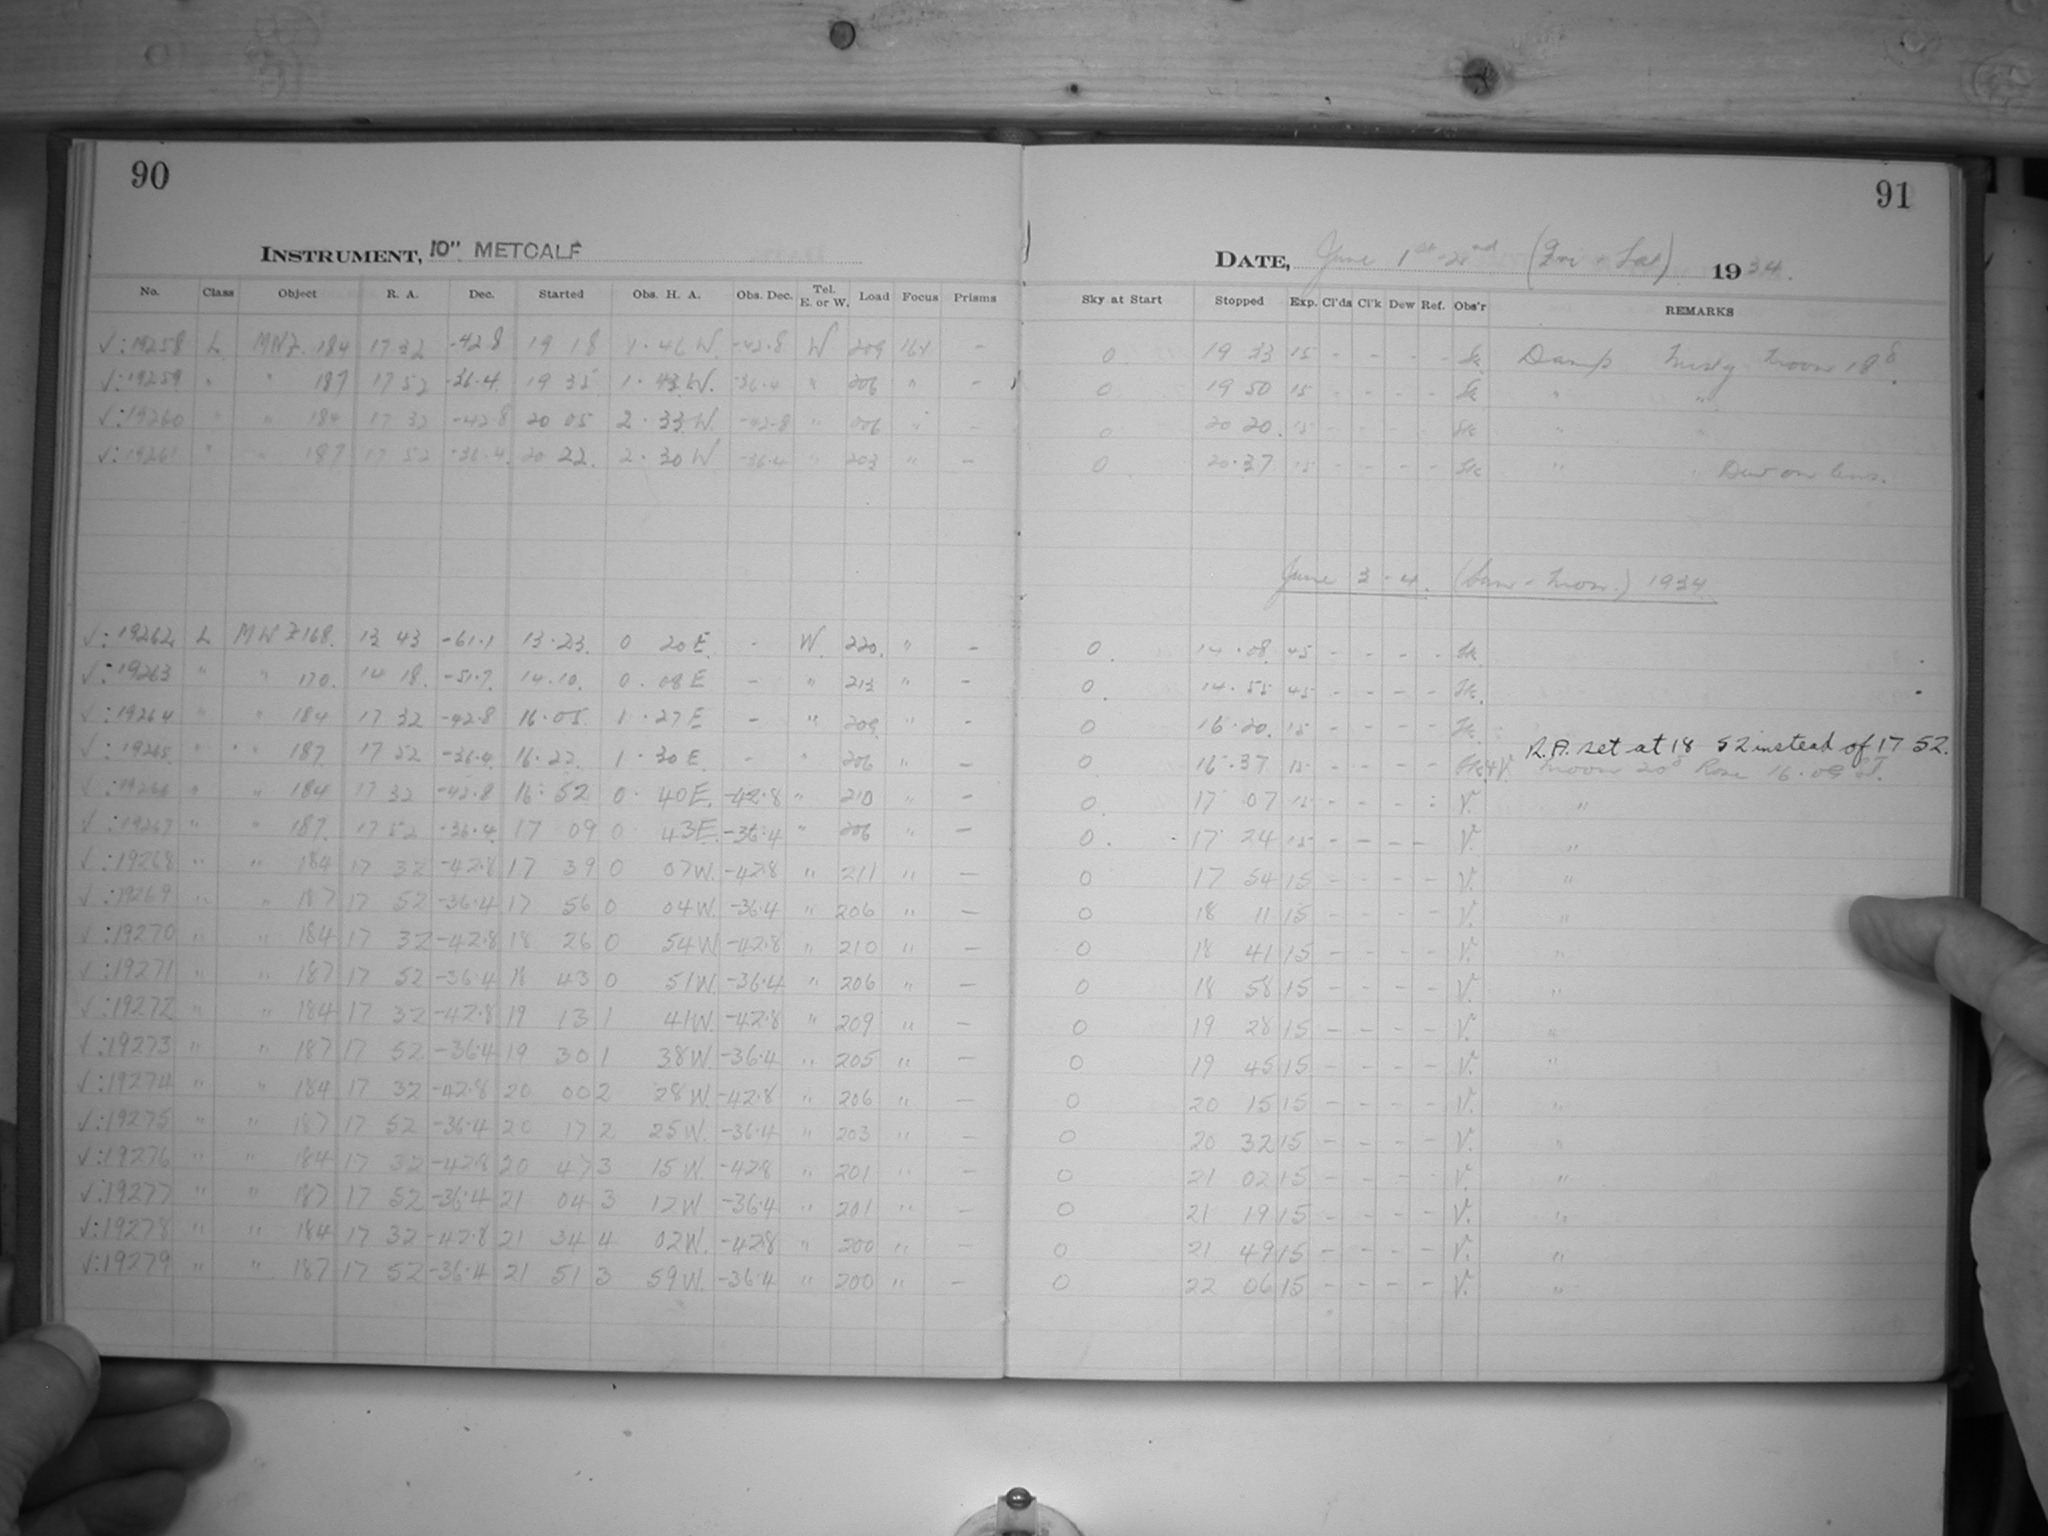 90
91
INSTRUMENT, 10" METCALF
DATE, June 1st-2nd (Fri - Sat) 1934.
No. Class Object R. A. Dec. Started Obs. H. A. Obs. Dec. Tel. E. or W. Load Focus Prisms Sky at Start Stopped Exp. Cl'ds Cl'k Dew Ref. Obs'r REMARKS
√: 19258 L MWZ. 184 17 32 -42.8 19 18 1. 46 W. -42.8 W 209 164 - 0 19 33 15 - - - - Sk. Damp Misty Moon 18
√: 19259 " " 187 17 52 -36.4 19 35 1. 43 W. -36.4 " 206 " - 0 19 50 15 - - - - Sk " "
√: 19260 " " 184 17 32 -42.8 20 05 2. 33 W. -42.8 " 206 " - 0 20 20. 15 - - - - Sk " "
√: 19261 " " 187 17 52 -36.4 20 22. 2. 30 W -36.4 " 203 " - 0 20.37 15 - - - - Sk " " Dew on lens.
June 3 - 4. (Sun - Mon.) 1934
√: 19262 L MWZ 168. 13 43 -61.1 13.23. 0 20 E. - W. 220. " - 0. 14.08. 45 - - - - Sk
√: 19263 " " 170. 14 18. -51.7. 14.10. 0. 08 E - " 213 " - 0. 14.55 45 - - - - Sk.
√: 19264 " " 184 17 32 -42.8 16.05. 1. 27 E - " 209. " - 0 16.20. 15 - - - - Sk.
R.A. set at 18 52 instead of 17 52.
√: 19265. " " 187. 17 52 -36.4. 16.22. 1. 30 E. - " 206 " - 0 16.37 15 - - - - Sk+V Moon 20 Rose 16.09 ST.
√: 19266 " " 184 17 32 -42.8 16. 52 0. 40 E. -42.8 " 210 " - 0. 17 07 15 - - - : V. "
√: 19267 " " 187. 17 52 -36.4. 17 09 0 43 E. -36.4 " 206 " - 0. 17 24 15 - - - - V. "
√: 19268 " " 184 17 32 -42.8 17 39 0 07 W. -42.8 " 211 " - 0 17 54 15 - - - - V. "
√: 19269 " " 187 17 52 -36.4 17 56 0 04 W. -36.4 " 206 " - 0 18 11 15 - - - - V. "
√: 19270 " " 184 17 32 -42.8 18 26 0 54 W -42.8 " 210 " - 0 18 41 15 - - - - V. "
√: 19271 " " 187 17 52 -36.4 18 43 0 51 W. -36.4 " 206 " - 0 18 58 15 - - - - V. "
√: 19272 " " 184 17 32 -42.8 19 13 1 41 W. -42.8 " 209 " - 0 19 28 15 - - - - V. "
√: 19273 " " 187 17 52 -36.4 19 30 1 38 W. -36.4 " 205 " - 0 19 45 15 - - - - V. "
√: 19274 " " 184 17 32 -42.8 20 00 2 28 W. -42.8 " 206 " - 0 20 15 15 - - - - V. "
√: 19275 " " 187 17 52 -36.4 20 17 2 25 W. -36.4 " 203 " - 0 20 32 15 - - - - V. "
√: 19276 " " 184 17 32 -42.8 20 47 3 15 W. -42.8 " 201 " - 0 21 02 15 - - - - V. "
√: 19277 " " 187 17 52 -36.4 21 04 3 12 W. -36.4 " 201 " - 0 21 19 15 - - - - V. "
√: 19278 " " 184 17 32 -42.8 21 34 4 02 W. -42.8 " 200 " - 0 21 49 15 - - - - V. "
√: 19279 " " 187 17 52 -36.4 21 51 3 59 W. -36.4 " 200 " - 0 22 06 15 - - - - V. "